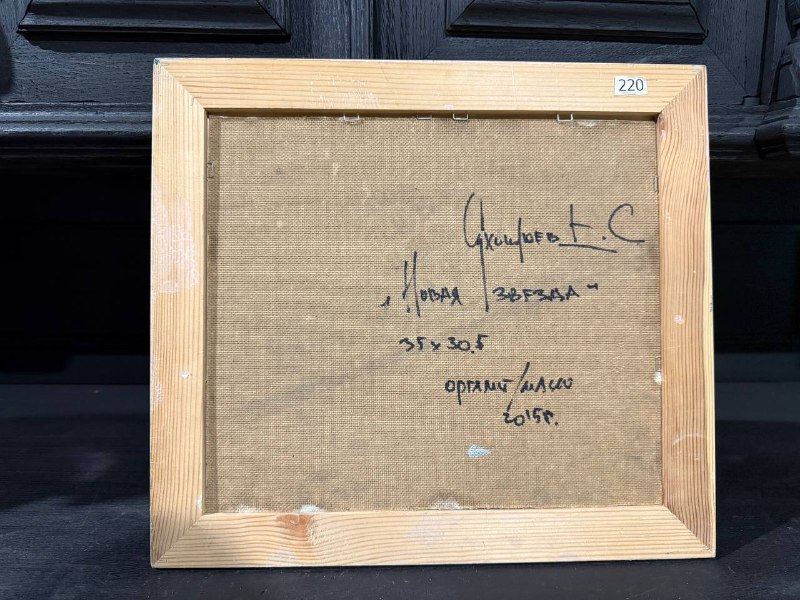 220
Е. С
„Новая звезда"
35 x 30,5
оргалит/масло
2015г.